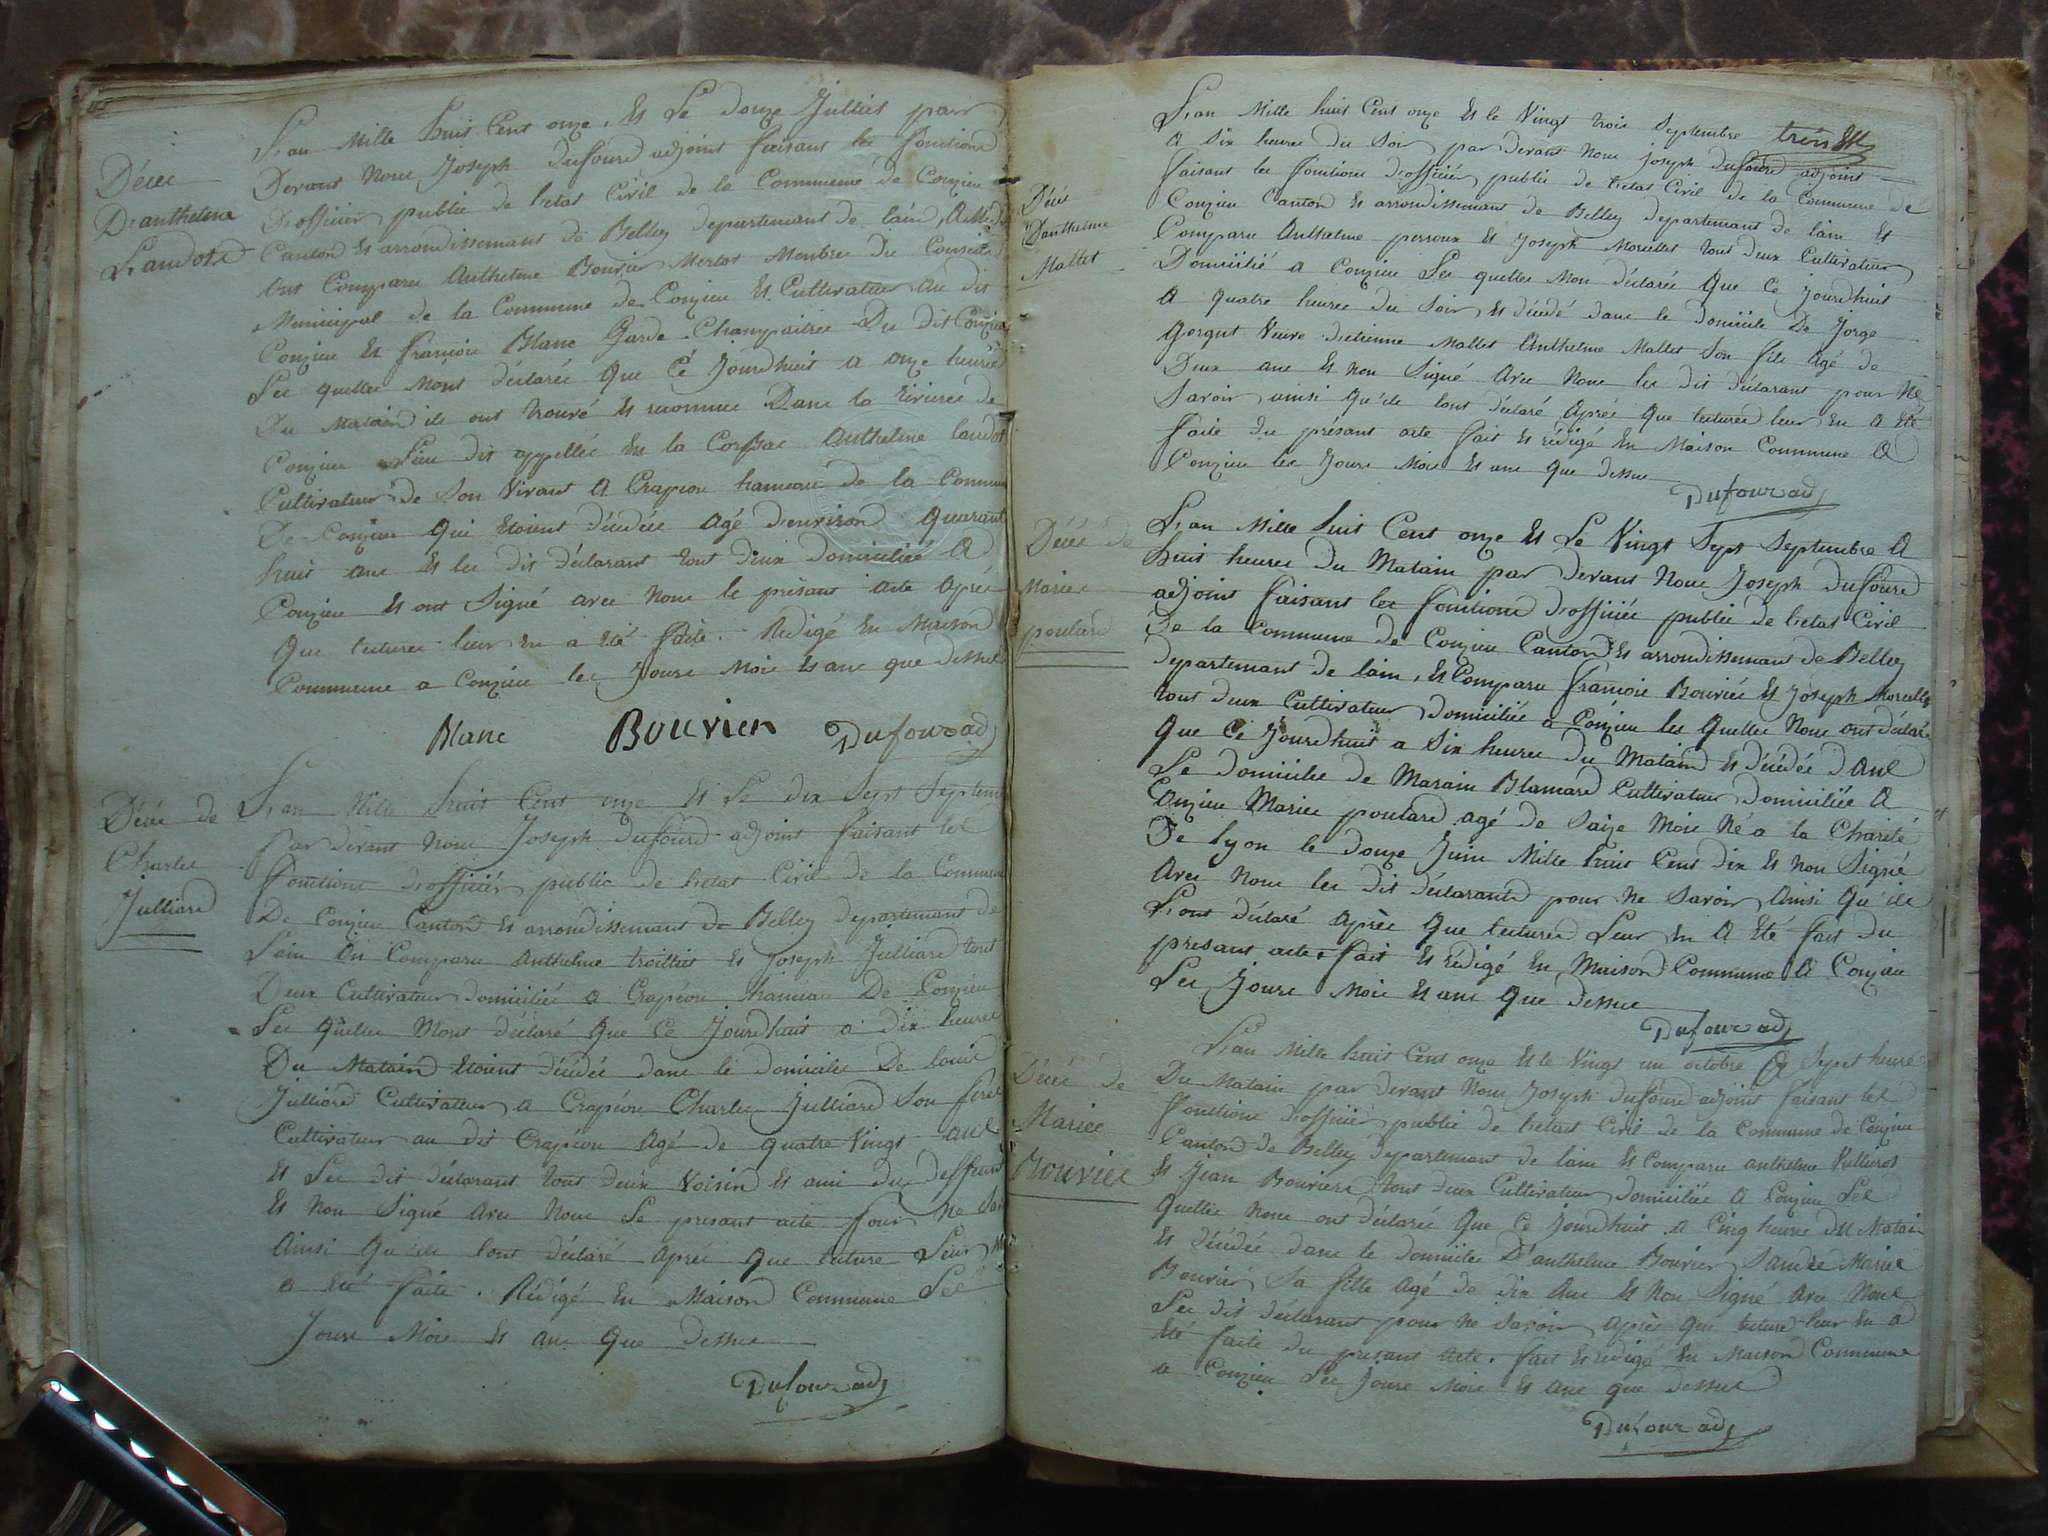 Décéé
D'anthelme
Landot
L'an Mille huit Cent onze, Et Le douze Julliet par
Devant Nous Joseph Dufourd adjoint faisant les fonctions
D'officier public de l'etat Civil de la Commune de Conzieu
Canton Et arrondissemant de Belley departemant de lain,
Ont Comparu Anthelme Bouvier Merlot Membre du Conseil
Municipal de la Commune de Conzieu Et Cultivateur au dit
Conzieu Et françois Blanc Garde Champaitre Du dit Conzieu
Les quelles Mont déclaréé Que Cé Jourdhuit a onze heures
Du Mataind ils ont trouvé Et reconnue Dans la Rivieree de
Conzieu Lieu dit appelléé En la Anthelme landot
Cultivateur de Son Vivant A Crapéou hameau de la Commune
De Conzieu Qui Etoient décédéé Agé d'environd Quarant
huit ans Et les dit déclarant tout deux domicilié A
Conzieu Et ont Signé avec Nous le présant acte Aprés
Que lecturee leur En a Eté faite. Rédigé En Maison
Commune a Conzieu les Jours Mois Et ans que dessus
Blanc Bouvier Dufour adj
Décéé de
Charles
Julliard
L'an Mille huit Cent onze Et Le dix Sept Septem
Par devant Nous Joseph Dufourd adjoint faisant les
Fonctions d'officiér public de l'etat Civil de la Commune
De Conzieu Canton Et arrondissemant de Belley departemant de
Lain On Comparu Anthelme troilliet Et Joseph Julliard tout
Deux Cultivateur domicilié a Crapéou hameau De Conzieu
Les Quelles Mont déclaré Que Ce Jourdhuit a dix heures
Du Mataind Etoient décédéé dans le domicilee De louis
Julliard Cultivateur a Crapéou Charles Julliard Son frere
Cultivateur au dit Crapéou Agé de quatre Vingt ans
Et Les dit déclarant tout deux Voisin Et ami du deffunt
Et Non Signé Avec Nous Le presant acte pour Ne
Ainsi Qu'ils lont déclaré Aprés Que lecture Leur
a Eté faite. Rédigé En Maison Commune Les
Jours Mois Et ans Que Dessus
Dufour adj
Décés
Danthelme
Mallet
L'an Mille huit Cent onze Et le Vingt trois Septembre
A Six heures du Soir par devant Nous Joseph Dufourd adjoint
faisant les fonctions d'officiér public de l'etat Civil de la Commune de
Conzieu Canton Et arrondissemant de Belley departemant de lain Et
Comparu Anthelme perroux Et Joseph Morellet tout deux Cultivateur
Domicilié a Conzieu Les quelles Mon déclaré Que Ce Jourdhuit
A Quatre heures du Soir Et décédé dans le domicile De Jorge
Gorgut Veuve d'etienne Mallet Anthelme Mallet Son fils Agé de
Deux ans Et Non Signé Avec Nous les dit déclarant pour Ne
Savoir ainsi Qu'ils lont déclaré Aprés Que lecturee leur En A Eté
faite du présant acte fait Et rédigé En Maison Commune A
Conzieu les Jours Mois Et ans Que dessus
Dufour adj
Décéé de
Mariee
poulard
L'an Mille huit Cent onze Et Le Vingt Sept Septembre A
huit heures Du Matain par devant Nous Joseph Dufourd
adjoint faisant les fonctions d'officiée public de l'etat Civil
De la Commune de Conzieu Canton Et arrondissemant de Belley
departemant de lain, Et Comparu françois Bouviée Et Joseph Morellet
tout deux Cultivateur domiciliée a Conzieu les Quelles Nous ont déclaré
Que Ce Jourdhuit a Six heures du Mataind Et décédée dans
Le domicilee de Marain Blamard Cultivateur domiciliée A
Conzieu Mariee poulard agé de Saize Mois Né a la Charité
De lyon le douze Juin Mille huit Cent dix Et Non Signé
Avec Nous les dit déclarants pour Ne Savoir Ainsi Qu'ils
L'ont déclaré Aprés Que lecturee Leur En A Eté fait du
présant acte. fait Et rédigé En Maison Commune A Conzieu
Les Jours Mois Et ans Que dessus
Dufour adj
Décéé de
Mariee
Bouviee
L'an Mille huit Cent onze Et le Vingt un octobre A Sept heures
Du Matain par devant Nous Joseph Dufourd adjoint faisant les
fonctions d'officiér public de l'etat Civil de la Commune de Conzieu
Canton de Belley departemant de lain Et Comparu anthelme
Et Jean Bouviere tout deux Cultivateur domiciliée A Conzieu Les
Quelles Nous ont déclarée Que Ce Jourdhuit a Cinq heures du Matain
Et décédée dans le domicilee D'anthelme Bouvier Mariee
Bouviér Sa fille Agé de dix Ans Et Non Signé Avec Nous
Les dit déclarant pour Ne Savoir Aprés Que lecture leur En A
Eté faite du presant Acte. fait Et rédigé En Maison Commune
a Conzieu Les Jours Mois Et ans que dessus
Dufour adj